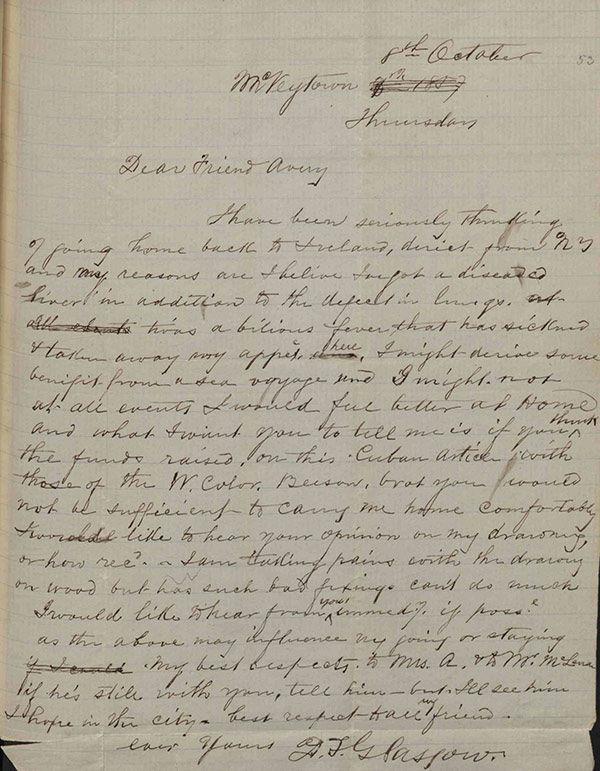 8th October
53
McVeytown 8th 1857
Thursday
Dear Friend Avery
I have been seriously thinking
of going home back to Ireland, direct from NY
and my reasons are I belive I've got a diseased
liver in addition to the defect in lungs.
twas a bilious fever that has sickned
& taken away my appet. here, I might derive some
benifit from a sea voyage and I might not
at all events I would feel better at Home
and what I want you to tell me is if you think
the funds raised, on this Cuban Article with
those of the W. Color. Beeson, brot you would
not be sufficient to carry me home comfortably
I would like to hear your opinion on my drawing,
or how recd. ~ I am taking pains with the drawing
on wood but has such bad fixings cant do much
I would like to hear from you immedy. if posse
as the above may influence my going or staying
if I could. My best respects to Mrs. A. & to Mr. McLena
if he's still with you, tell him — but I'll see him
I hope in the city — best respect to all my friend.
ever Yours D. J. Glasgow.